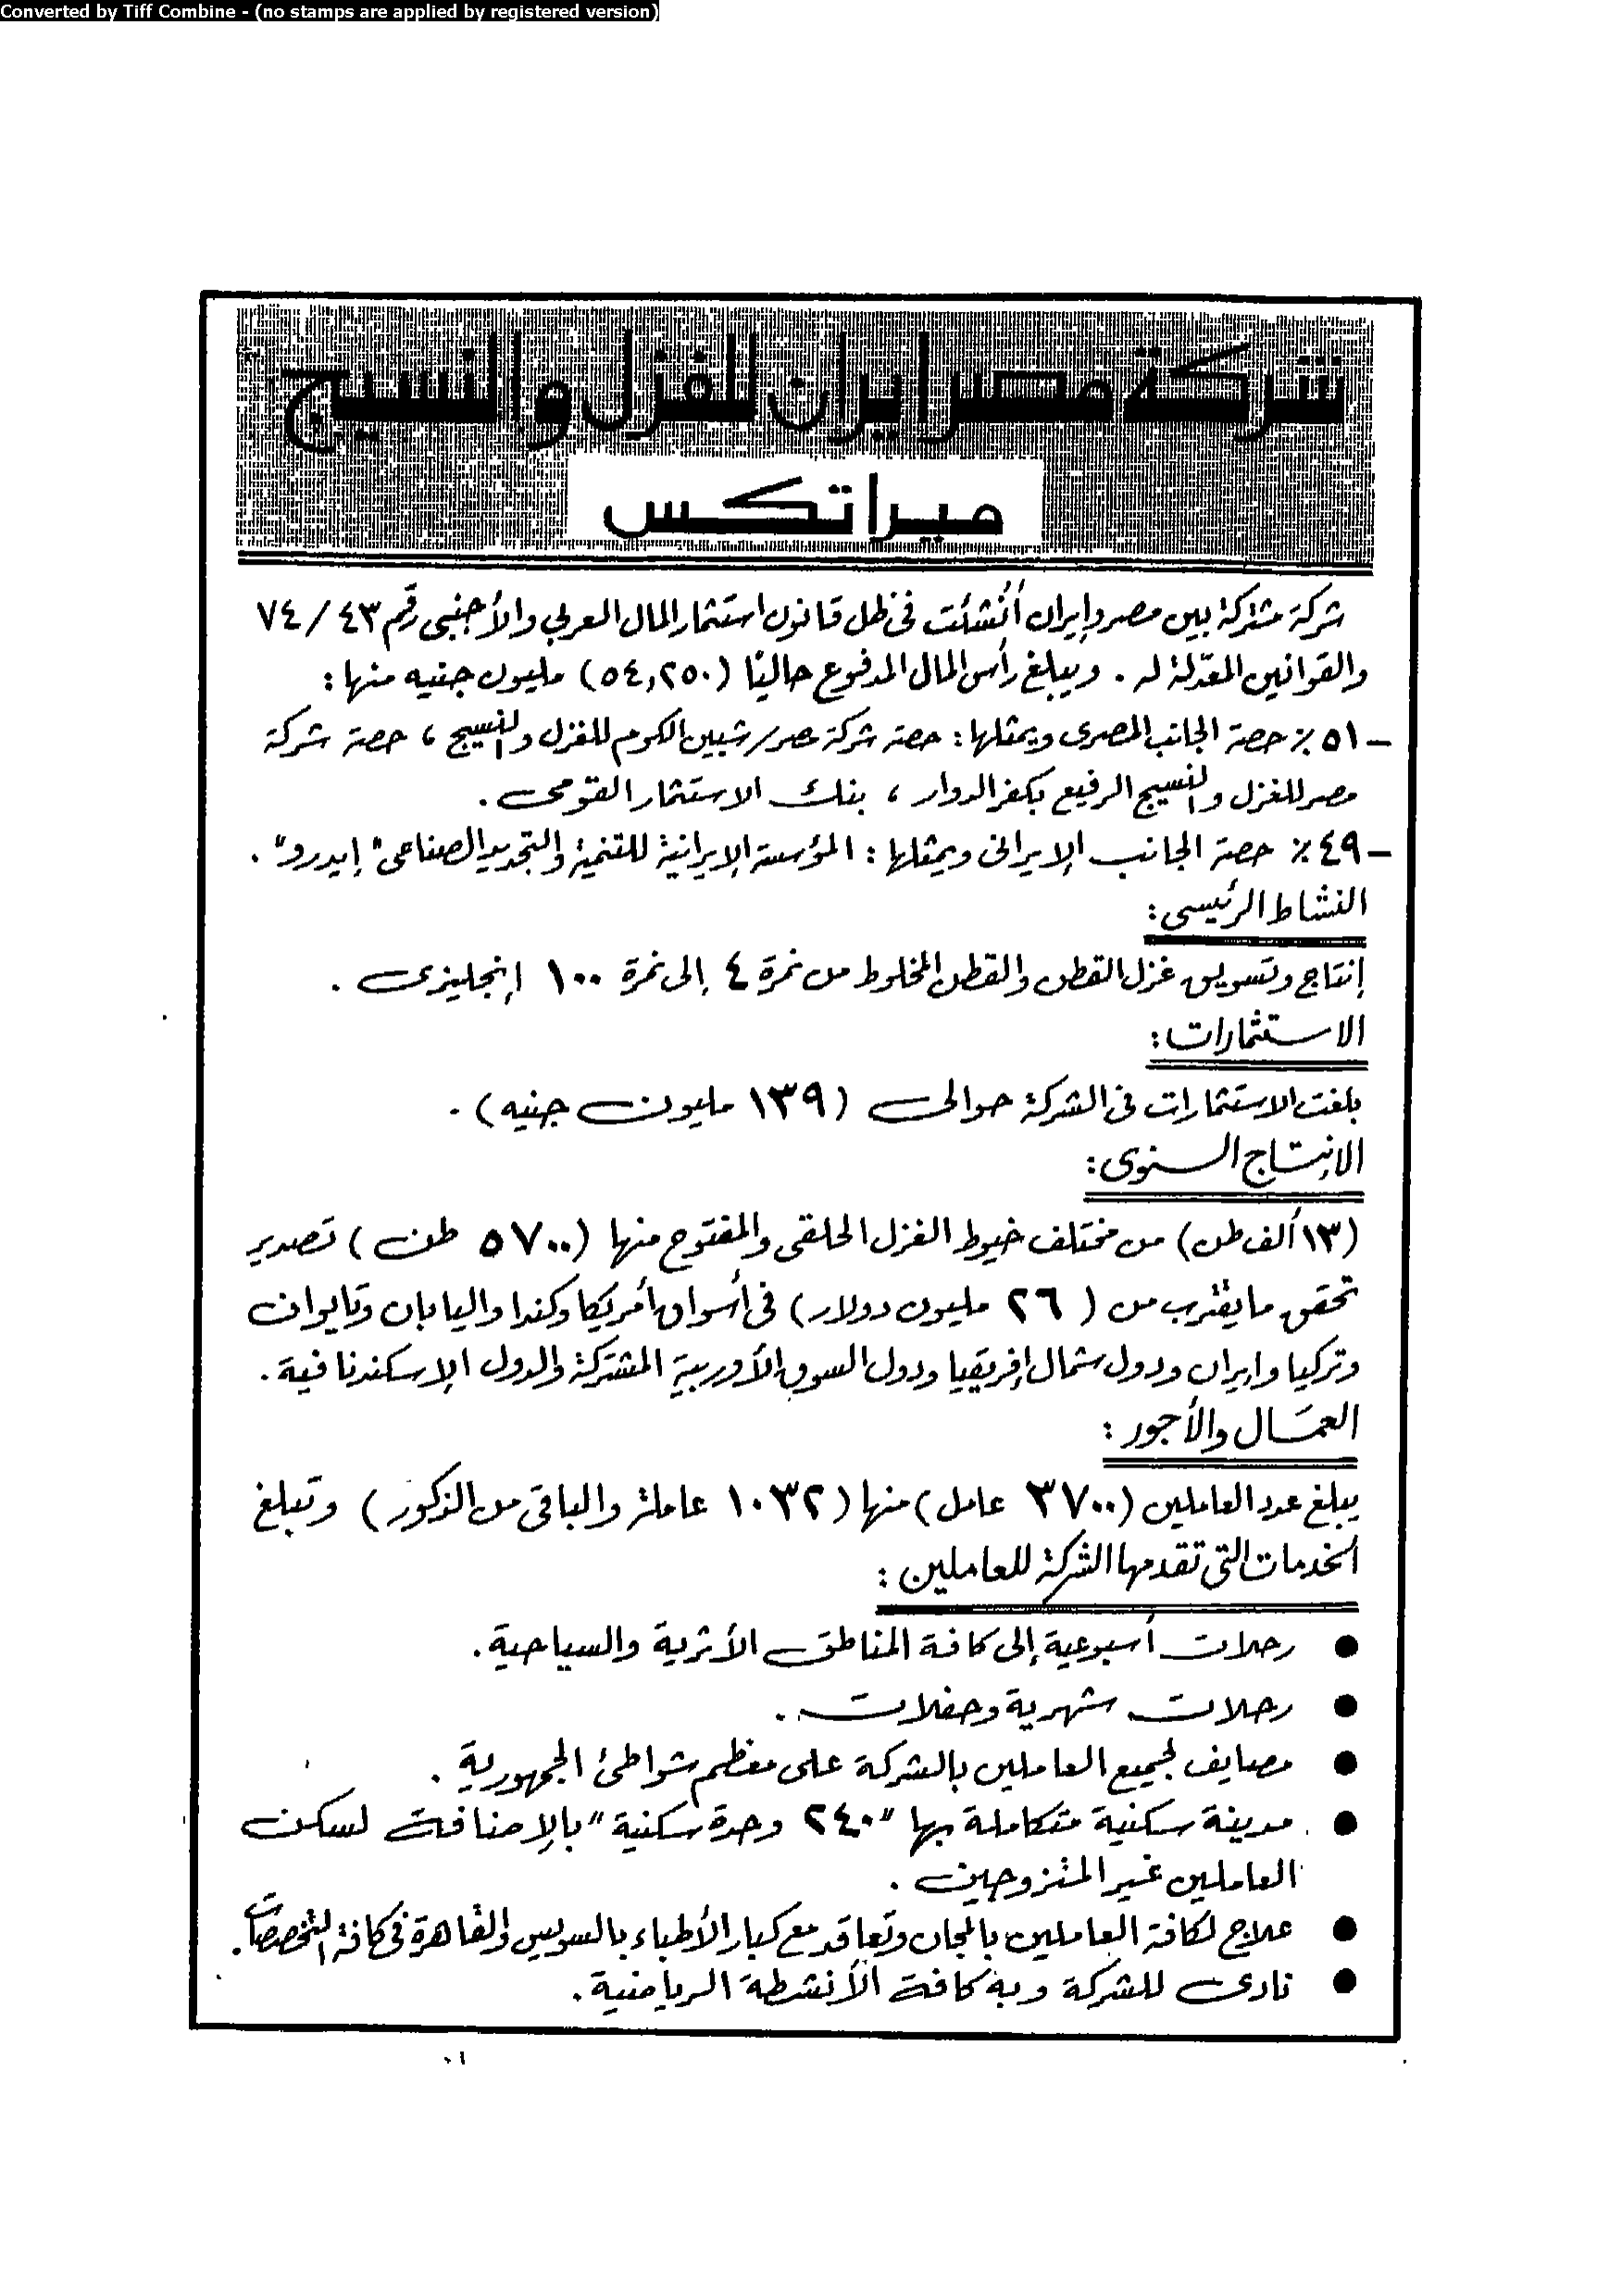 Converted by Tiff Combine - (no stamps are applied by registered version)
شركة مصر ايران للغزل والنسيج
ميراتكس
شركة مشتركة بين مصر وإيران أُنشئت فى ظل قانون استثمار المال العربي والأجنبى رقم ٤٣ / ٧٤
والقوانين المعدّلة له . ويبلغ رأس المال المدفوع حاليًا (٥٤,٢٥٠) مليون جنيه منها :
– ٥١ ٪ حصة الجانب المصرى ويمثلها : حصة شركة مصر/شبين الكوم للغزل والنسيج ، حصة شركة
مصر للغزل والنسيج الرفيع بكفر الدوار ، بنك الاستثمار القومى .
– ٤٩ ٪ حصة الجانب الإيرانى ويمثلها : المؤسسة الإيرانية للتنمية والتجديد الصناعى "إيدرو" .
النشاط الرئيسى :
إنتاج وتسويق غزل القطن والقطن المخلوط من نمرة ٤ إلى نمرة ١٠٠ إنجليزى .
الاستثمارات :
بلغت الاستثمارات فى الشركة حوالى (١٣٩ مليون جنيه) .
الإنتاج السنوى :
(١٣ ألف طن) من مختلف خيوط الغزل الحلقى والمفتوح منها (٥٧٠٠ طن) تصدير
تحقق ما يقرب من (٢٦ مليون دولار) فى أسواق أمريكا وكندا واليابان وتايوان
وتركيا وإيران ودول شمال إفريقيا ودول السوق الأوربية المشتركة والدول الإسكندنافية .
العمّال والأجور :
يبلغ عدد العاملين (٣٧٠٠ عامل) منها (١٠٣٢ عاملة والباقى من الذكور) وتبلغ
الخدمات التى تقدمها الشركة للعاملين :
● رحلات أسبوعية إلى كافة المناطق الأثرية والسياحية .
● رحلات شهرية وحفلات .
● مصايف لجميع العاملين بالشركة على معظم شواطئ الجمهورية .
● مدينة سكنية متكاملة بها "٢٤٠ وحدة سكنية" بالإضافة لسكن
العاملين غير المتزوجين .
● علاج لكافة العاملين بالمجان وتعاقد مع كبار الأطباء بالسويس والقاهرة فى كافة التخصصات .
● نادى للشركة وبه كافة الأنشطة الرياضية .